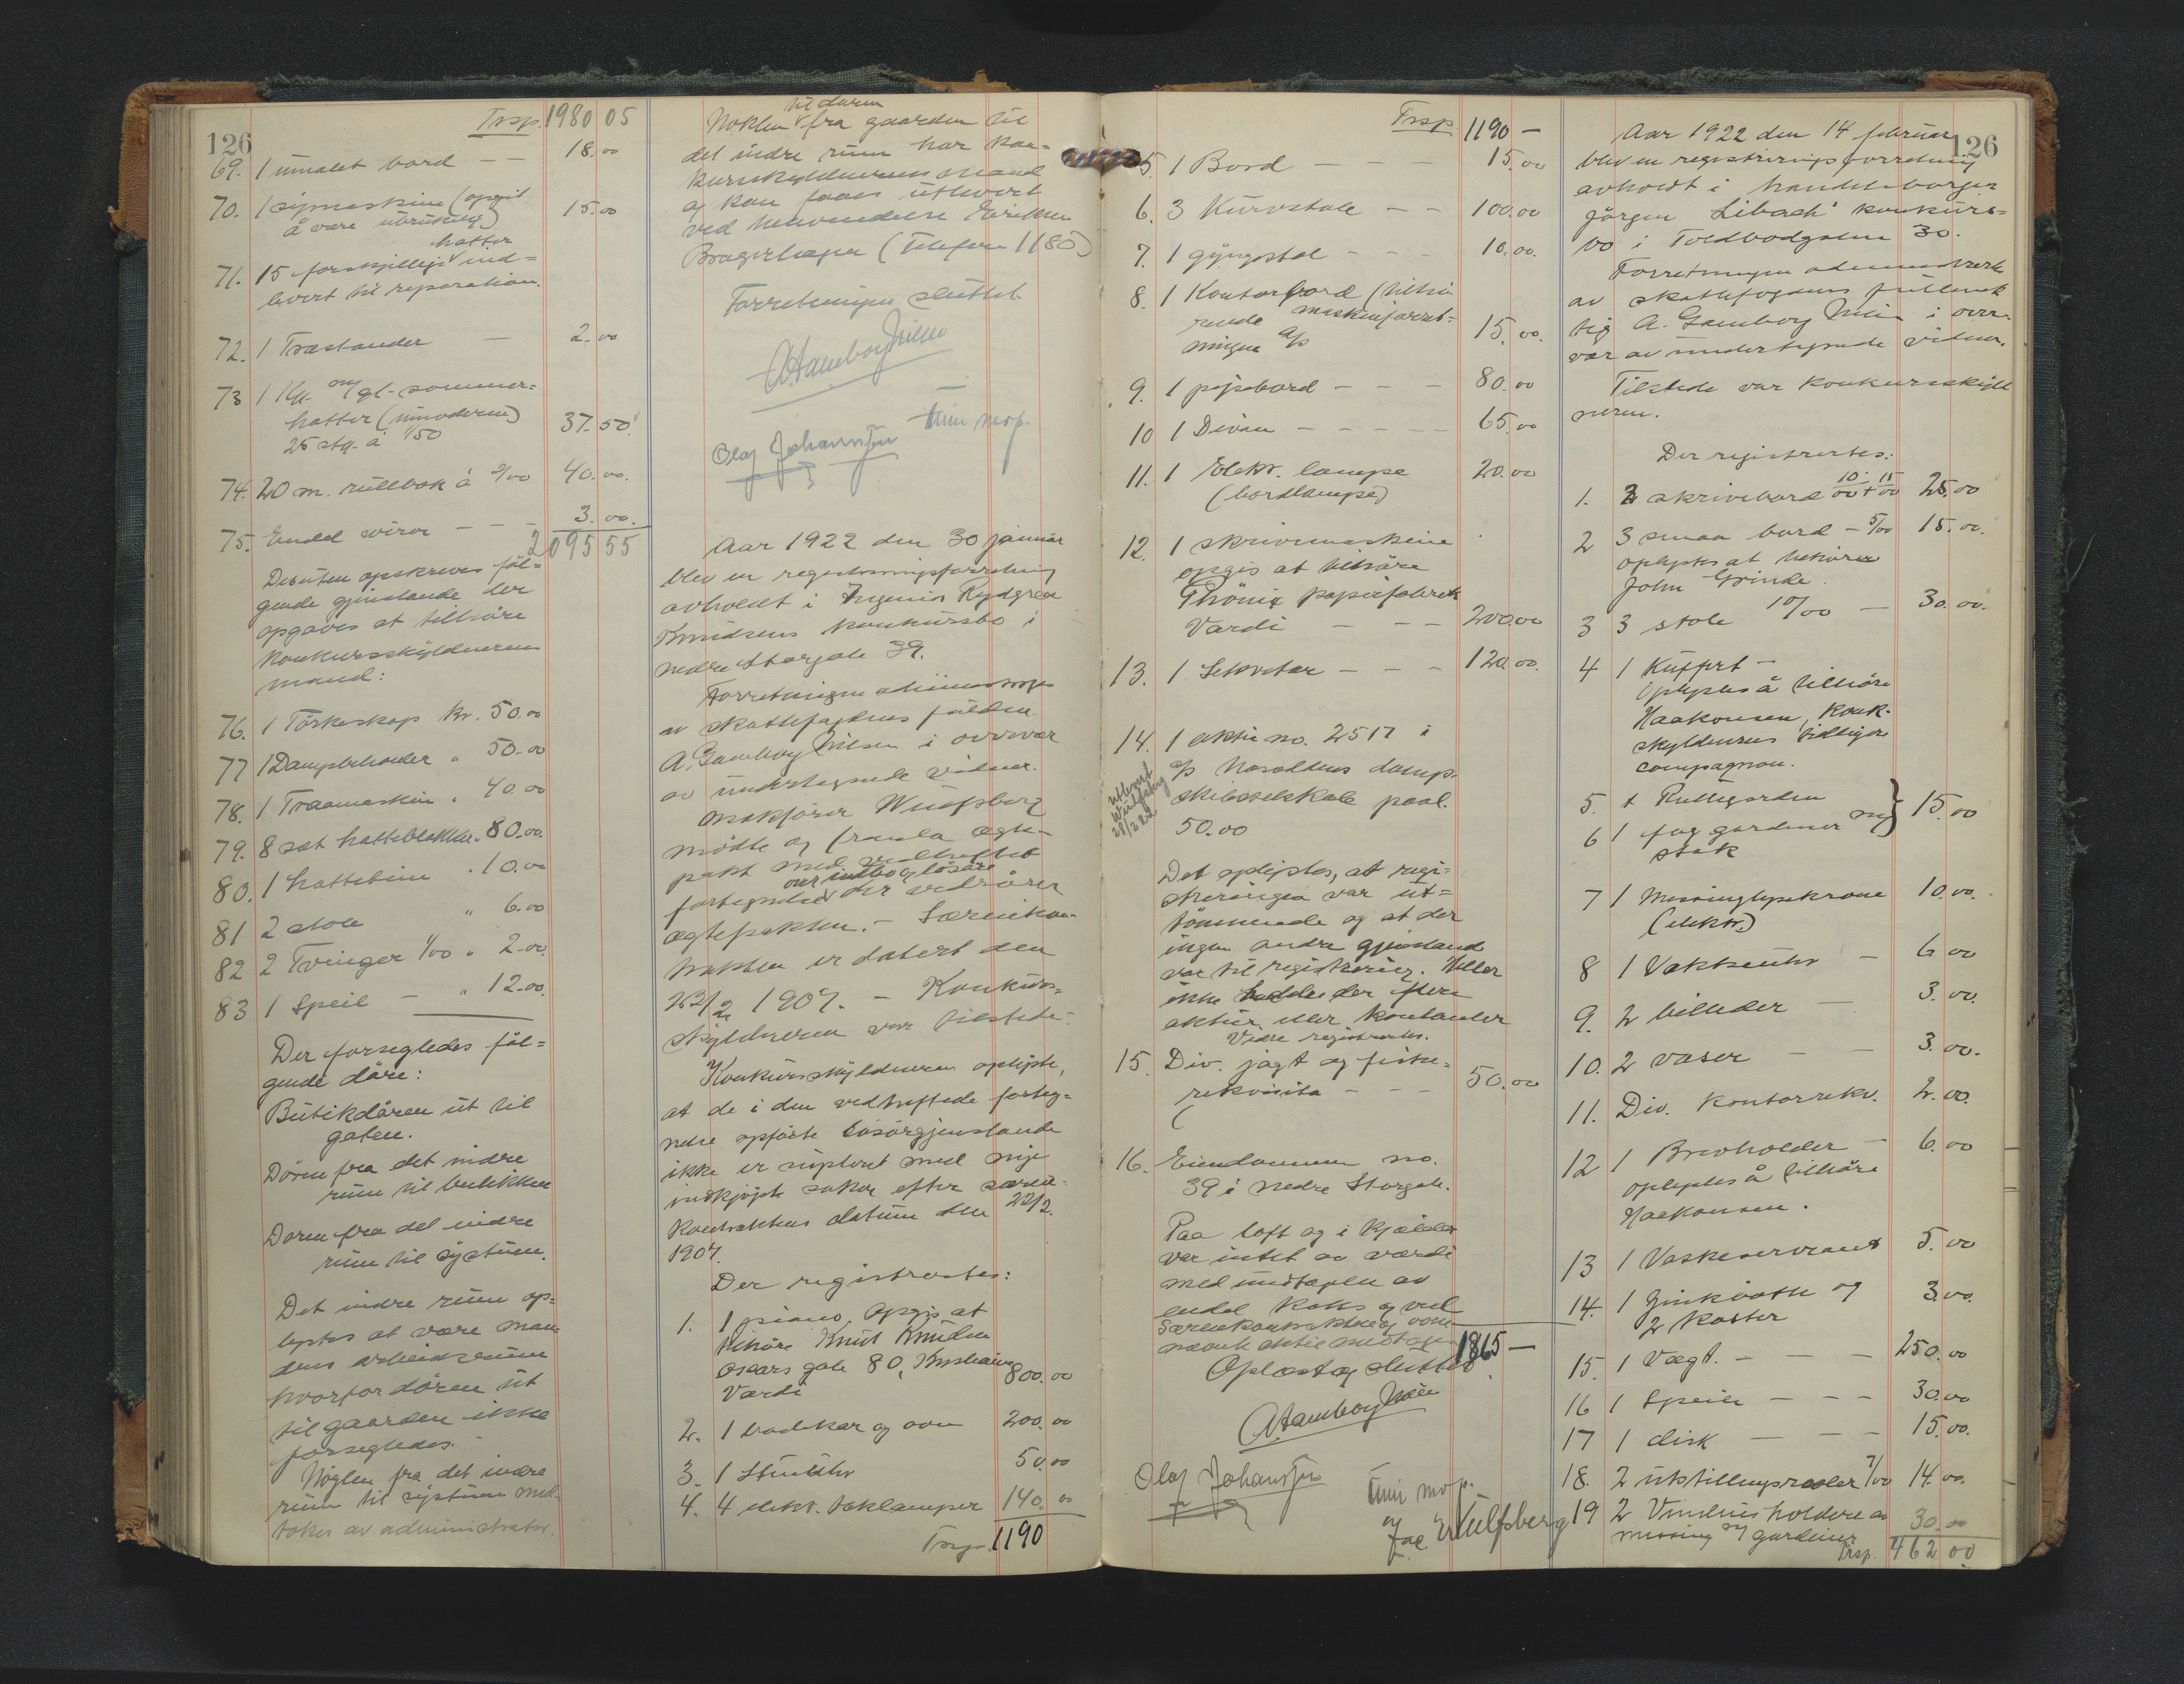 126
Trsp. 1980 05
69. 1 umalet bord — — 18.00
70. 1 symaskine (opgit
å være ubrukelig) 15.00
hatter
71. 15 forskjellige ind=
levert til reparation.
72. 1 Træstander — 2.00
73 1 Kg. gl. sommer=
hatter (umoderne)
25 stg. à 1/50 37.50
74. 20 m. rullbok à 2/00 40.00.
75. Endel viror — — 3.00.
2095 55
Desuten opskreves föl=
gende gjenstande der
opgaves at tilhöre
konkursskyldneren
mand:
76. 1 Törkeskap kr. 50.00
77 1 Dampbeholder " 50.00
78. 1 Traamaskin " 40.00
79. 8 sæt hatteblokker " 80.00.
80. 1 hattebim " 10.00
81 2 stole " 6.00
82 2 Tvinger 1/00 " 2.00.
83 1 Speil — " 12.00.
Der forsegledes föl=
gende döre:
Butikdören ut til
gaten.
Dören fra det indre
rum til butikken
Dören fra det indre
rum til systuen.
Det indre rum op=
lystes at være man
dens arbeidsrum
hvorfor dören ut
til gaarden ikke
forsegledes.
Nöglen fra det indre
rum til systuen med
tokes av administrator.
til dören
Nöklen fra gaarden til
det indre rum har kon=
kursskyldnerens mand
og kan faaes utlevert
ved henvendelse Eriksen
Bragerhagen (Telefon 1180)
Forretningen sluttet.
A Gamborg Nilsen
Olaf Johansen
Aar 1922 den 30 januar
blev en registreringsforretning
avholdt i Ingeniör Rydgren
Knudsens konkursbo i
nedre Storgate 39.
Forretningen
av skattefogdens fuldm.
A. Gamborg Nilsen i overvær
av undertegnede vidner.
Saksförer Wulfsberg
mödte og fremla ægte-
pakt med vedheftet
over indbo og lösöre
fortegnelse der vedrörer
ægtepakten. — Særeiekon-
trakten er datert den
22/2 1907. — Konkurs=
skyldneren var tilstede.
Konkursskyldneren oplyste,
at de i den vedheftede forteg=
nelse opförte lösöregjenstande
ikke er supleret med nye
indkjöpte saker efter særeie-
kontraktens datum den 22/2.
1907.
Der registrertes:
1. 1 piano, Opgis at
tilhöre Knut Knudsen
Oscars gate 80, Kristiania
Værdi 800.00
2. 1 badekar og ovn 200.00
3. 1 Stueuhr 50.00
4. 4 elektr. taklamper 140.00
Trsp. 1190
Trsp 1190 —
5. 1 Bord — — — 15.00
6. 3 Kurvstole — — 100.00
7. 1 gyngestol — — 10.00.
8. 1 Kontorbord (tilhö
rende maskinforret=
ningen A/S 15.00.
9. 1 pipebord — — — 80.00
10 1 Divan — — — — 65.00
11. 1 Elektr. lampe 20.00
(bordlampe)
12. 1 skrivemaskine
opgis at tilhöre
Phönix papirfabrik
Værdi — — — 200.00
13. 1 Sekretær — — — 120.00.
14. 1 aktie no. 2517 i
A/S Nesoddens damp=
skibsselskab paal.
50.00
Utlevert
Wulfsberg
28/2 22
Det oplystes, at regi=
streringen var ut=
tömmende og at der
ingen andre gjenstande
var til registrering. Heller
ikke hadde der flere
aktier eller kontanter
Videre registrertes.
15. Div. jagt og fiske=
rekvisita — — — 50.00
(
16. Eiendommen no.
39 i nedre Storgate.
Paa loft og i kjælder
var intet av værdi
med undtagelse av
endel koks og ved
Særeiekontrakten og oven
nævnte aktie medtages 1865 —
Oplæst og sluttet.
A Gamborg Nilsen
Olaf Johansen
og
Jac. Wulfsberg
126
Aar 1922 den 14 februar
blev en registreringsforretning
avholdt i handelsborger
Jörgen Libach' konkurs=
bo i Toldbodgaten 30.
Forretningen
av skattefogdens fuldmek
tig A. Gamborg Nilsen i over-
vær av undertegnede vidner.
Tilstede var konkursskyld
neren.
Der registrertes:
1. 2 skrivebord 10/00 + 15/00 25.00
2 3 smaa bord — 5/00 15.00.
oplystes at tilhöre
John Grinde.
3 3 stole 10/00 — 30.00.
4 1 Kuffert —
Oplystes å tilhöre
Haakonsen, konk.
skyldneres tidligere
compagnon.
5. 1 Rullegardin
6 1 fag gardiner m/ } 15.00
stok
7 1 Messinglysekrone 10.00.
(elektr.)
8 1 Vækkeuhr — 6.00
9. 2 billeder — 3.00.
10. 2 vaser — — 3.00.
11. Div. Kontorrekv. 2.00.
12 1 Brevholder — 6.00
oplystes å tilhöre
Haakonsen.
13 1 Vaskeservant 5.00
14. 1 Zinkbötte og 3.00.
2 koster
15. 1 Vægt. — — — 250.00
16 1 Speil — — — 30.00
17 1 disk — — — 15.00.
18. 2 utstillingsreoler 7/00 14.00.
19 2 Vindusholdere av 30.00
messing m/ gardiner.
Trsp. 462 00